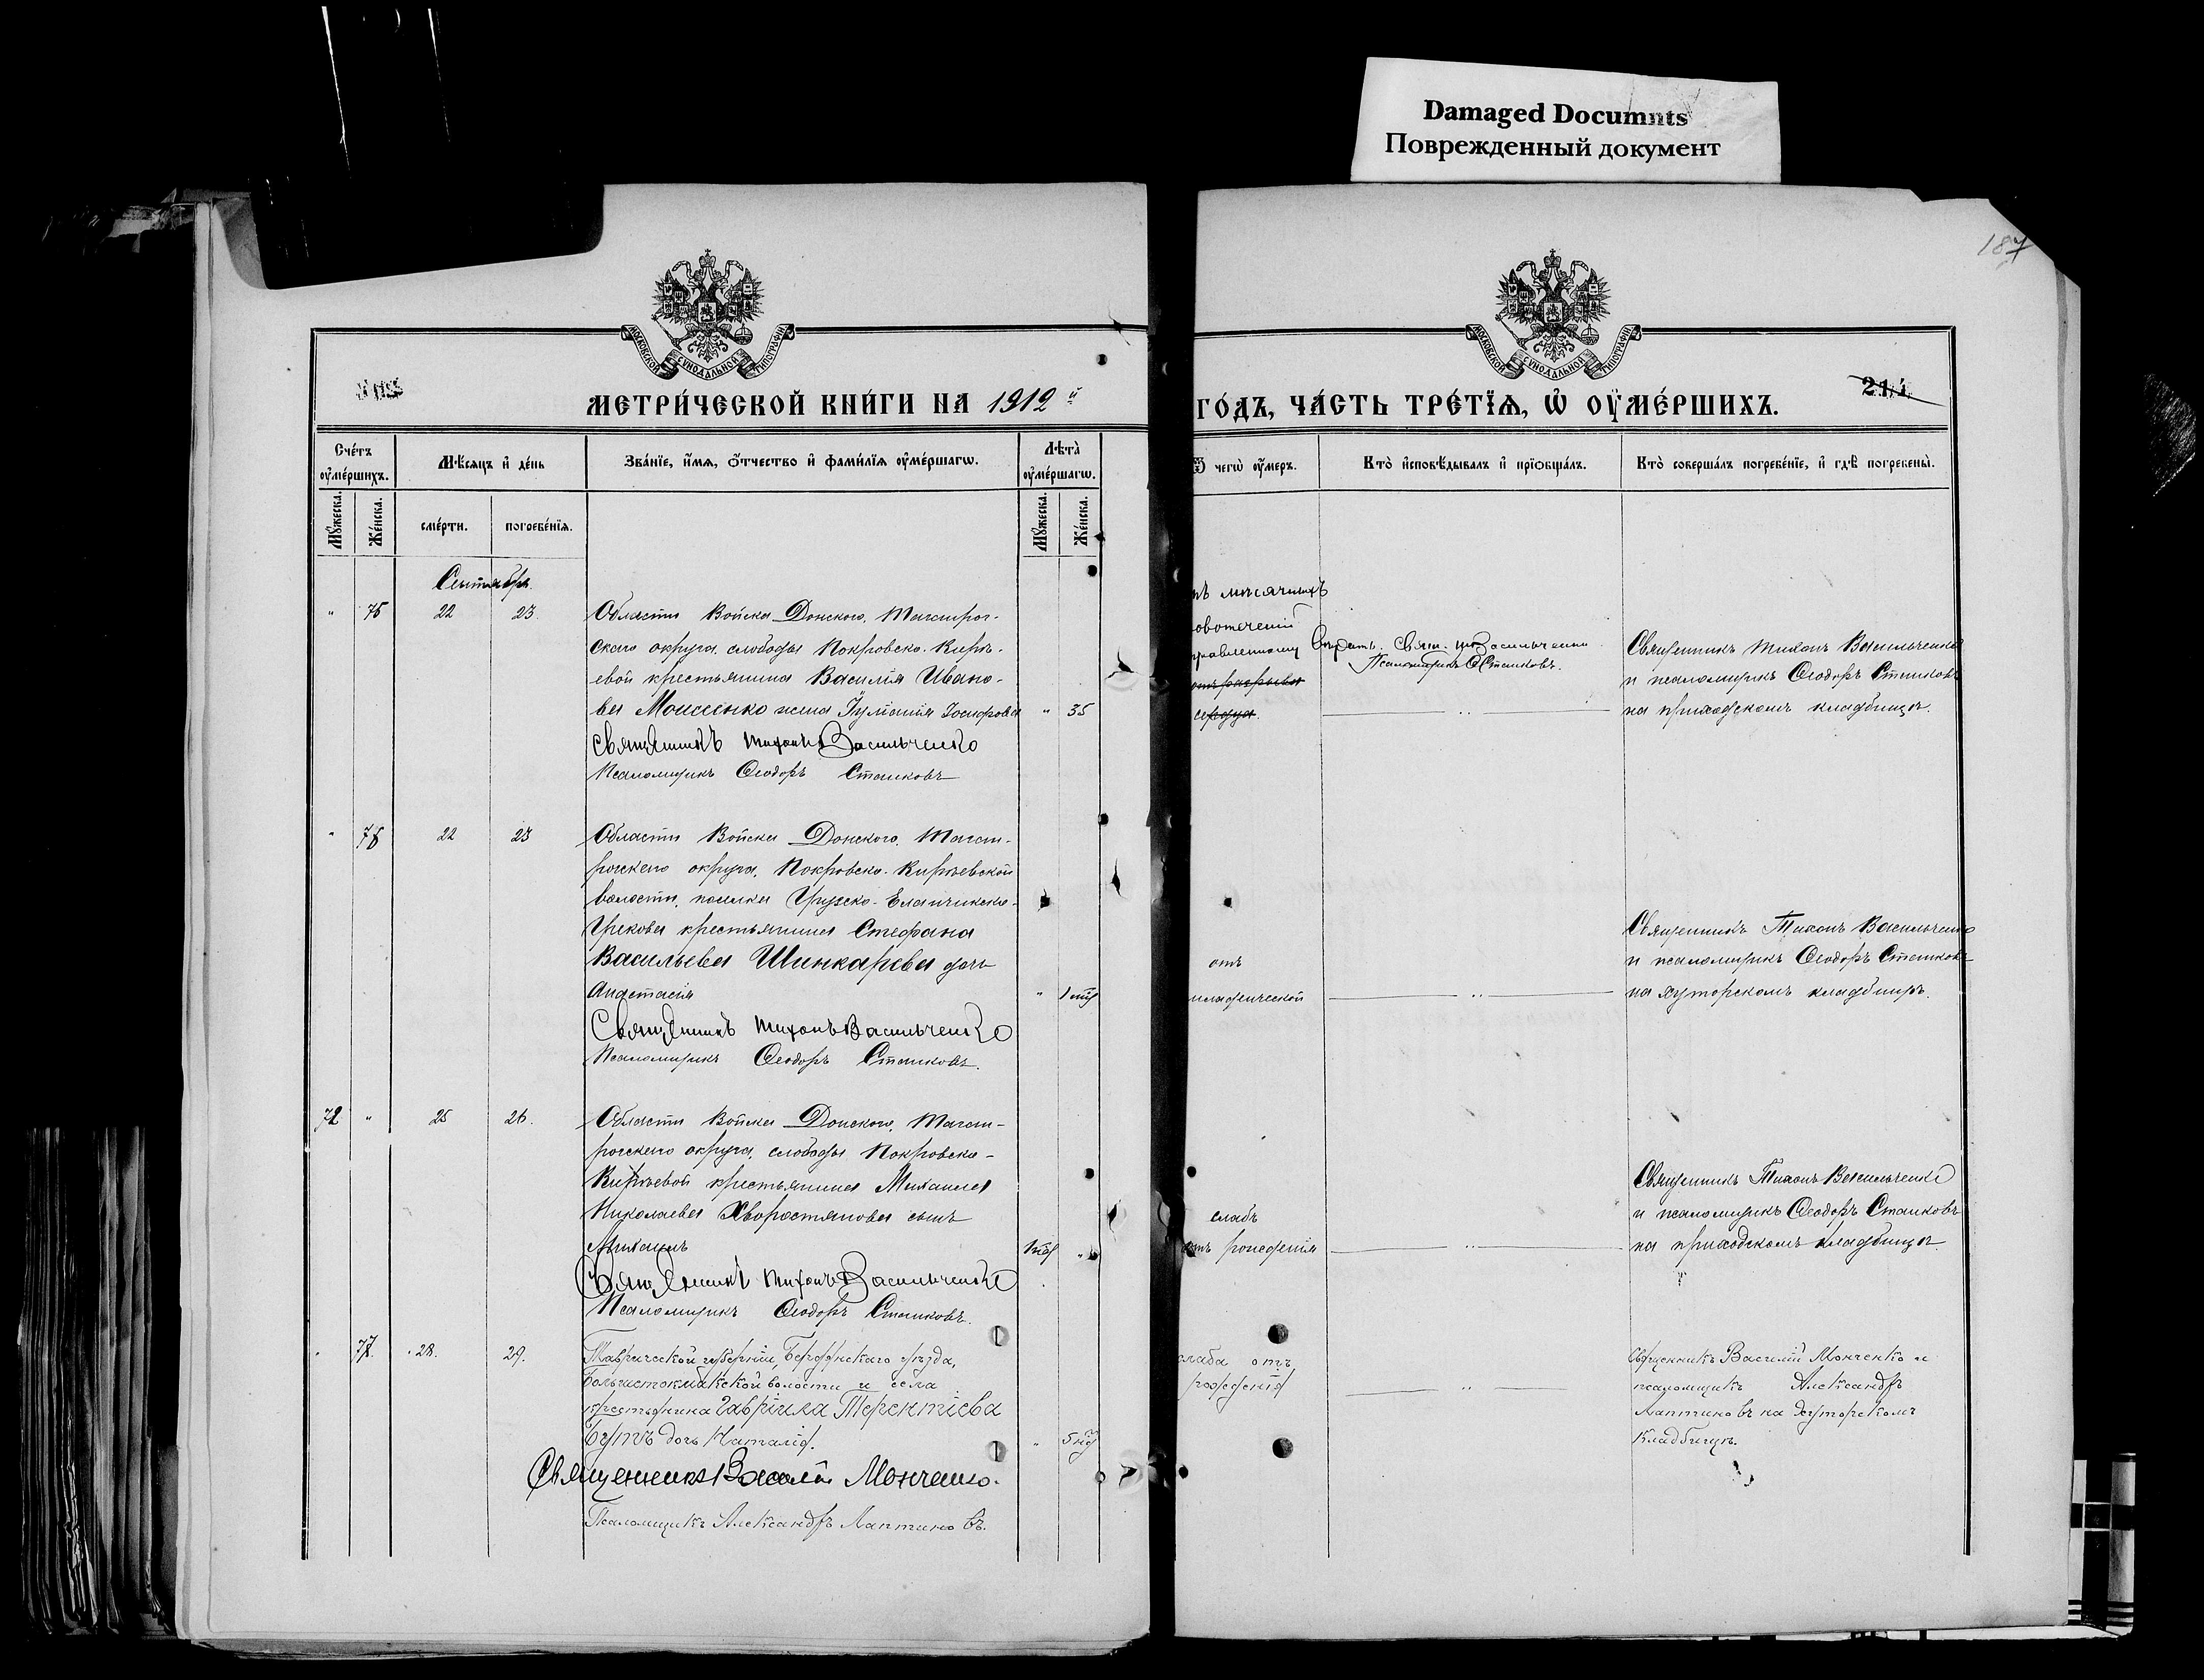 Damaged Documnts
Поврежденный документ
187
МОСКОВСКОЙ СУНОДАЛЬНОЙ ТИПОГРАФІИ
МОСКОВСКОЙ СУНОДАЛЬНОЙ ТИПОГРАФІИ
МЕТРИ́ЧЕСКОЙ КНИ́ГИ НА 1912 й
ГО́ДЪ, ЧА́СТЬ ТРЕ́ТЇѦ, Ѡ҆ ОУ҆МЕ́РШИХЪ.
214
Сче́тъ оу҆ме́ршихъ.
Мѣ́сѧцъ и҆ де́нь
Зва́нїе, и҆́мѧ, ѻ҆́тчество и҆ фами́лїѧ оу҆ме́ршагѡ.
Лѣ́та оу҆ме́ршагѡ.
Ѿ чегѡ̀ оу҆́меръ.
Кто̀ и҆сповѣ́дывалъ и҆ прїѡбща́лъ.
Кто̀ соверша́лъ погребе́нїе, и҆ гдѣ̀ погребены̀.
Мꙋ́жеска.
Же́нска.
сме́рти.
погребе́нїѧ.
Мꙋ́жеска.
Же́нска.
Сентябрь
" 75 22 23. Области Войска Донского, Таганрог-
скаго округа, слободы Покровско-Кирѣ-
евой крестьянина Василія Ивано-
ва Моисеенко жена Іуліанія Іосифова " 35
Священникъ Тихонъ Васильченко
Псаломщикъ Ѳеодоръ Станковъ
мѣсячныхъ
сердца.
Псаломщикъ Ѳ Станковъ.
Священникъ Тихонъ Васильченко
и псаломщикъ Ѳеодоръ Станковъ
на приходскомъ кладбищѣ.
" 76 22 23 Области Войска Донского, Таган-
рогскаго округа, Покровско-Кирѣевской
волости, поселка Грузско-Еланчикско-
Грекова крестьянина Стефана
Васильева Шинкарева дочь
Анастасія " 1 мѣс
Священникъ Тихонъ Васильченко
Псаломщикъ Ѳеодоръ Станковъ.
отъ
младенческой
Священникъ Тихонъ Васильченко
и псаломщикъ Ѳеодоръ Станковъ
на хуторскомъ кладбищѣ.
72 " 25 26. Области Войска Донского, Таган-
рогскаго округа, слободы Покровско-
Кирѣевой крестьянина Михаила
Николаева Хворостянова сынъ
Михаилъ "
Священникъ Тихонъ Васильченко
Псаломщикъ Ѳеодоръ Станковъ.
слабъ
отъ рожденія
Священникъ Тихонъ Васильченко
и псаломщикъ Ѳеодоръ Станковъ
на приходскомъ кладбищѣ.
77. 28. 29. Таврической губерніи, Бердянскаго уѣзда,
волости и села
крестьянина Гавріила Терентіева
Бутъ дочь Наталія. " 5
Священникъ Василій Монченко.
Псаломщикъ Александръ Лаптиновъ.
слаба отъ
рожденія
Священникъ Василій Монченко и
псаломщикъ Александръ
Лаптиновъ на хуторскомъ
кладбищѣ.